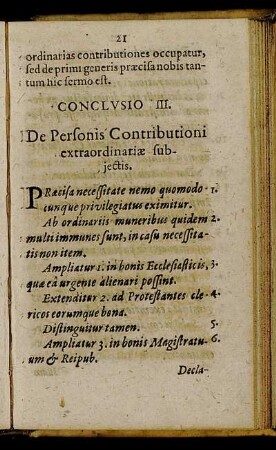 21
ordinarias contributiones occupatur,
sed de primi generis præcisa nobis tan-
tum hic sermo est.
CONCLVSIO III.
De Personis Contributioni
extraordinariæ sub-
jectis.
PRæcisa necessitate nemo quomodo- 1.
cunque privilegiatus eximitur.
Ab ordinariis muneribus quidem 2.
multi immunes sunt, in casu necessita-
tis non item.
Ampliatur 1. in bonis Ecclesiasticis, 3.
quæ eâ urgente alienari possint.
Extenditur 2. ad Protestantes cle- 4.
ricos eorumque bona.
Distinguitur tamen. 5.
Ampliatur 3. in bonis Magistratu- 6.
um & Reipub.
Decla-